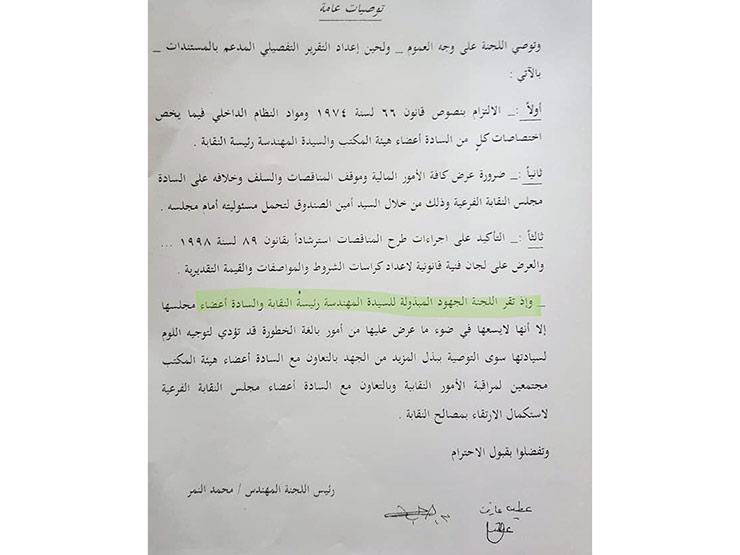 توصيات عامة
وتوصي اللجنة على وجه العموم _ ولحين إعداد التقرير التفصيلي المدعم بالمستندات _
بالآتي :
أولاً :_ الالتزام بنصوص قانون ٦٦ لسنة ١٩٧٤ ومواد النظام الداخلي فيما يخص
اختصاصات كلٍ من السادة أعضاء هيئة المكتب والسيدة المهندسة رئيسة النقابة .
ثانياً :_ ضرورة عرض كافة الأمور المالية وموقف المناقصات والسلف وخلافه على السادة
مجلس النقابة الفرعية وذلك من خلال السيد أمين الصندوق لتحمل مسئوليته أمام مجلسه .
ثالثاً :_ التأكيد على اجراءات طرح المناقصات استرشاداً بقانون ٨٩ لسنة ١٩٩٨ ...
والعرض على لجان فنية قانونية لاعداد كراسات الشروط والمواصفات والقيمة التقديرية .
_ وإذ تقر اللجنة الجهود المبذولة للسيدة المهندسة رئيسة النقابة والسادة أعضاء مجلسها
إلا أنها لايسعها في ضوء ما عرض عليها من أمور بالغة الخطورة قد تؤدي لتوجيه اللوم
لسيادتها سوى التوصية ببذل المزيد من الجهد بالتعاون مع السادة أعضاء هيئة المكتب
مجتمعين لمراقبة الأمور النقابية وبالتعاون مع السادة أعضاء مجلس النقابة الفرعية
لاستكمال الارتقاء بمصالح النقابة .
وتفضلوا بقبول الاحترام
رئيس اللجنة المهندس / محمد النمر